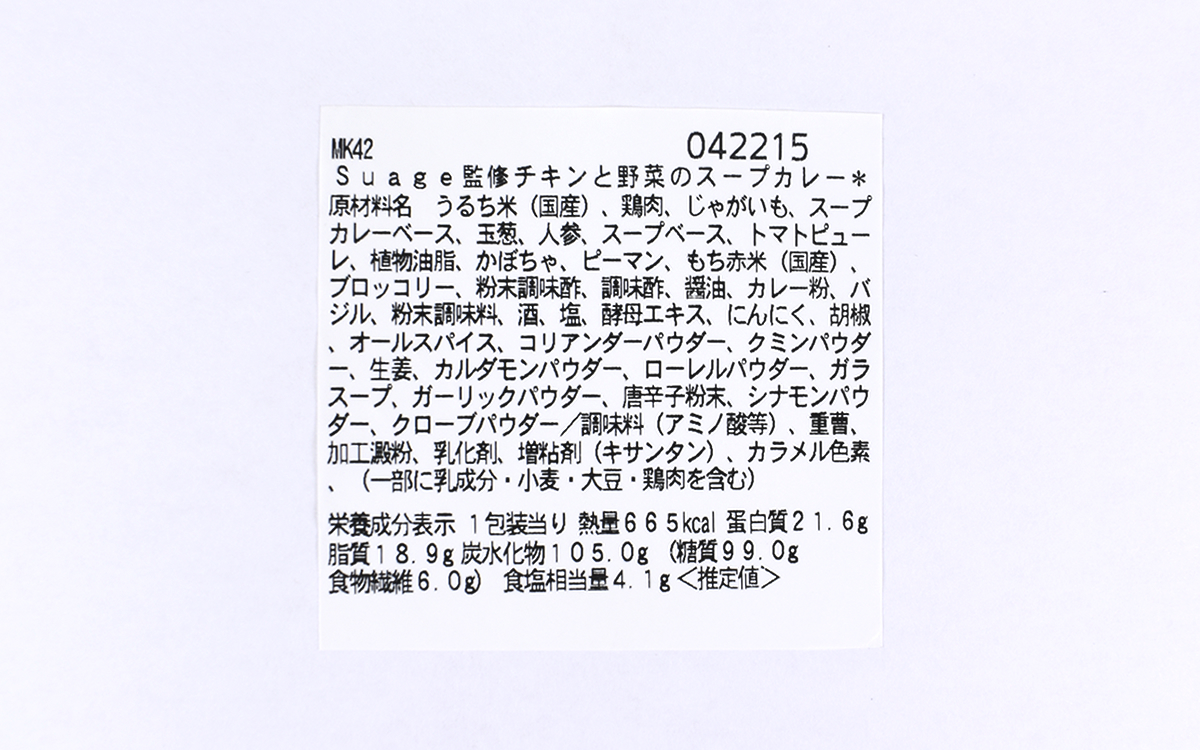 MK42 042215
Suage監修チキンと野菜のスープカレー*
原材料名 うるち米(国産)、鶏肉、じゃがいも、スープ
カレーベース、玉葱、人参、スープベース、トマトピュー
レ、植物油脂、かぼちゃ、ピーマン、もち赤米(国産)、
ブロッコリー、粉末調味酢、調味酢、醤油、カレー粉、バ
ジル、粉末調味料、酒、塩、酵母エキス、にんにく、胡椒
、オールスパイス、コリアンダーパウダー、クミンパウダ
ー、生姜、カルダモンパウダー、ローレルパウダー、ガラ
スープ、ガーリックパウダー、唐辛子粉末、シナモンパウ
ダー、クローブパウダー/調味料(アミノ酸等)、重曹、
加工澱粉、乳化剤、増粘剤(キサンタン)、カラメル色素
、(一部に乳成分・小麦・大豆・鶏肉を含む)
栄養成分表示 1包装当り 熱量665kcal 蛋白質21.6g
脂質18.9g 炭水化物105.0g (糖質99.0g
食物繊維6.0g) 食塩相当量4.1g<推定値>